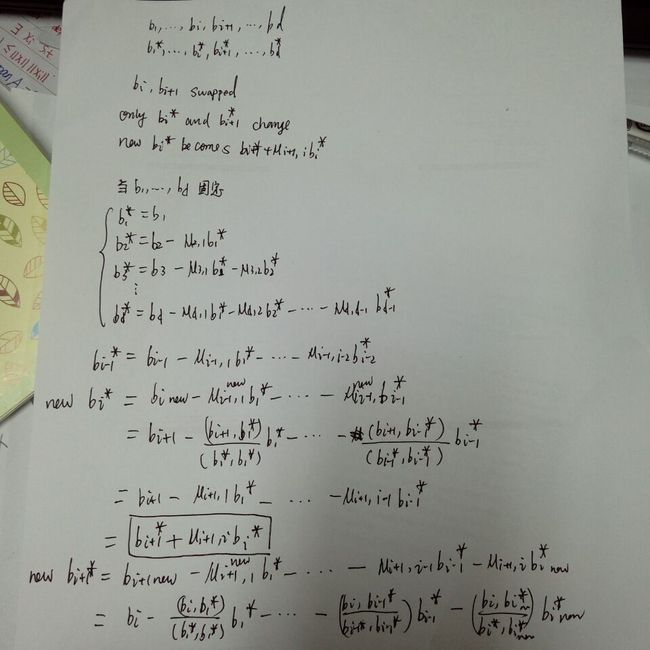 b₁, ..., bᵢ, bᵢ₊₁, ..., bd
b₁*, ..., bᵢ*, bᵢ₊₁*, ..., bd*
bᵢ, bᵢ₊₁ swapped
only bᵢ* and bᵢ₊₁* change
new bᵢ* becomes bᵢ₊₁* + μᵢ₊₁,ᵢ bᵢ*
当 b₁, ..., bd 固定
b₁* = b₁
b₂* = b₂ - μ₂,₁b₁*
b₃* = b₃ - μ₃,₁b₁* - μ₃,₂b₂*
⋮
bd* = bd - μd,₁b₁* - μd,₂b₂* - ... - μd,d-1 bd-1*
bᵢ₋₁* = bᵢ₋₁ - μᵢ₋₁,₁b₁* - ... - μᵢ₋₁,ᵢ₋₂bᵢ₋₂*
new bᵢ* = bᵢ new - μᵢ,₁ⁿᵉʷ b₁* - ... - μᵢ,ᵢ₋₁ⁿᵉʷ bᵢ₋₁*
= bᵢ₊₁ - (bᵢ₊₁, b₁*)/(b₁*, b₁*) b₁* - ... - (bᵢ₊₁, bᵢ₋₁*)/(bᵢ₋₁*, bᵢ₋₁*) bᵢ₋₁*
= bᵢ₊₁ - μᵢ₊₁,₁b₁* - ... - μᵢ₊₁,ᵢ₋₁ bᵢ₋₁*
= bᵢ₊₁* + μᵢ₊₁,ᵢ bᵢ*
new bᵢ₊₁* = bᵢ₊₁ new - μᵢ₊₁,₁ⁿᵉʷ b₁* - ... - μᵢ₊₁,ᵢ₋₁bᵢ₋₁* - μᵢ₊₁,ᵢ bᵢ* new
= bᵢ - (bᵢ, b₁*)/(b₁*, b₁*) b₁* - ... - ((bᵢ, bᵢ₋₁*)/(bᵢ₋₁*, bᵢ₋₁*)) bᵢ₋₁* - ((bᵢ, bᵢ* new)/(bᵢ*, bᵢ* new)) bᵢ* new